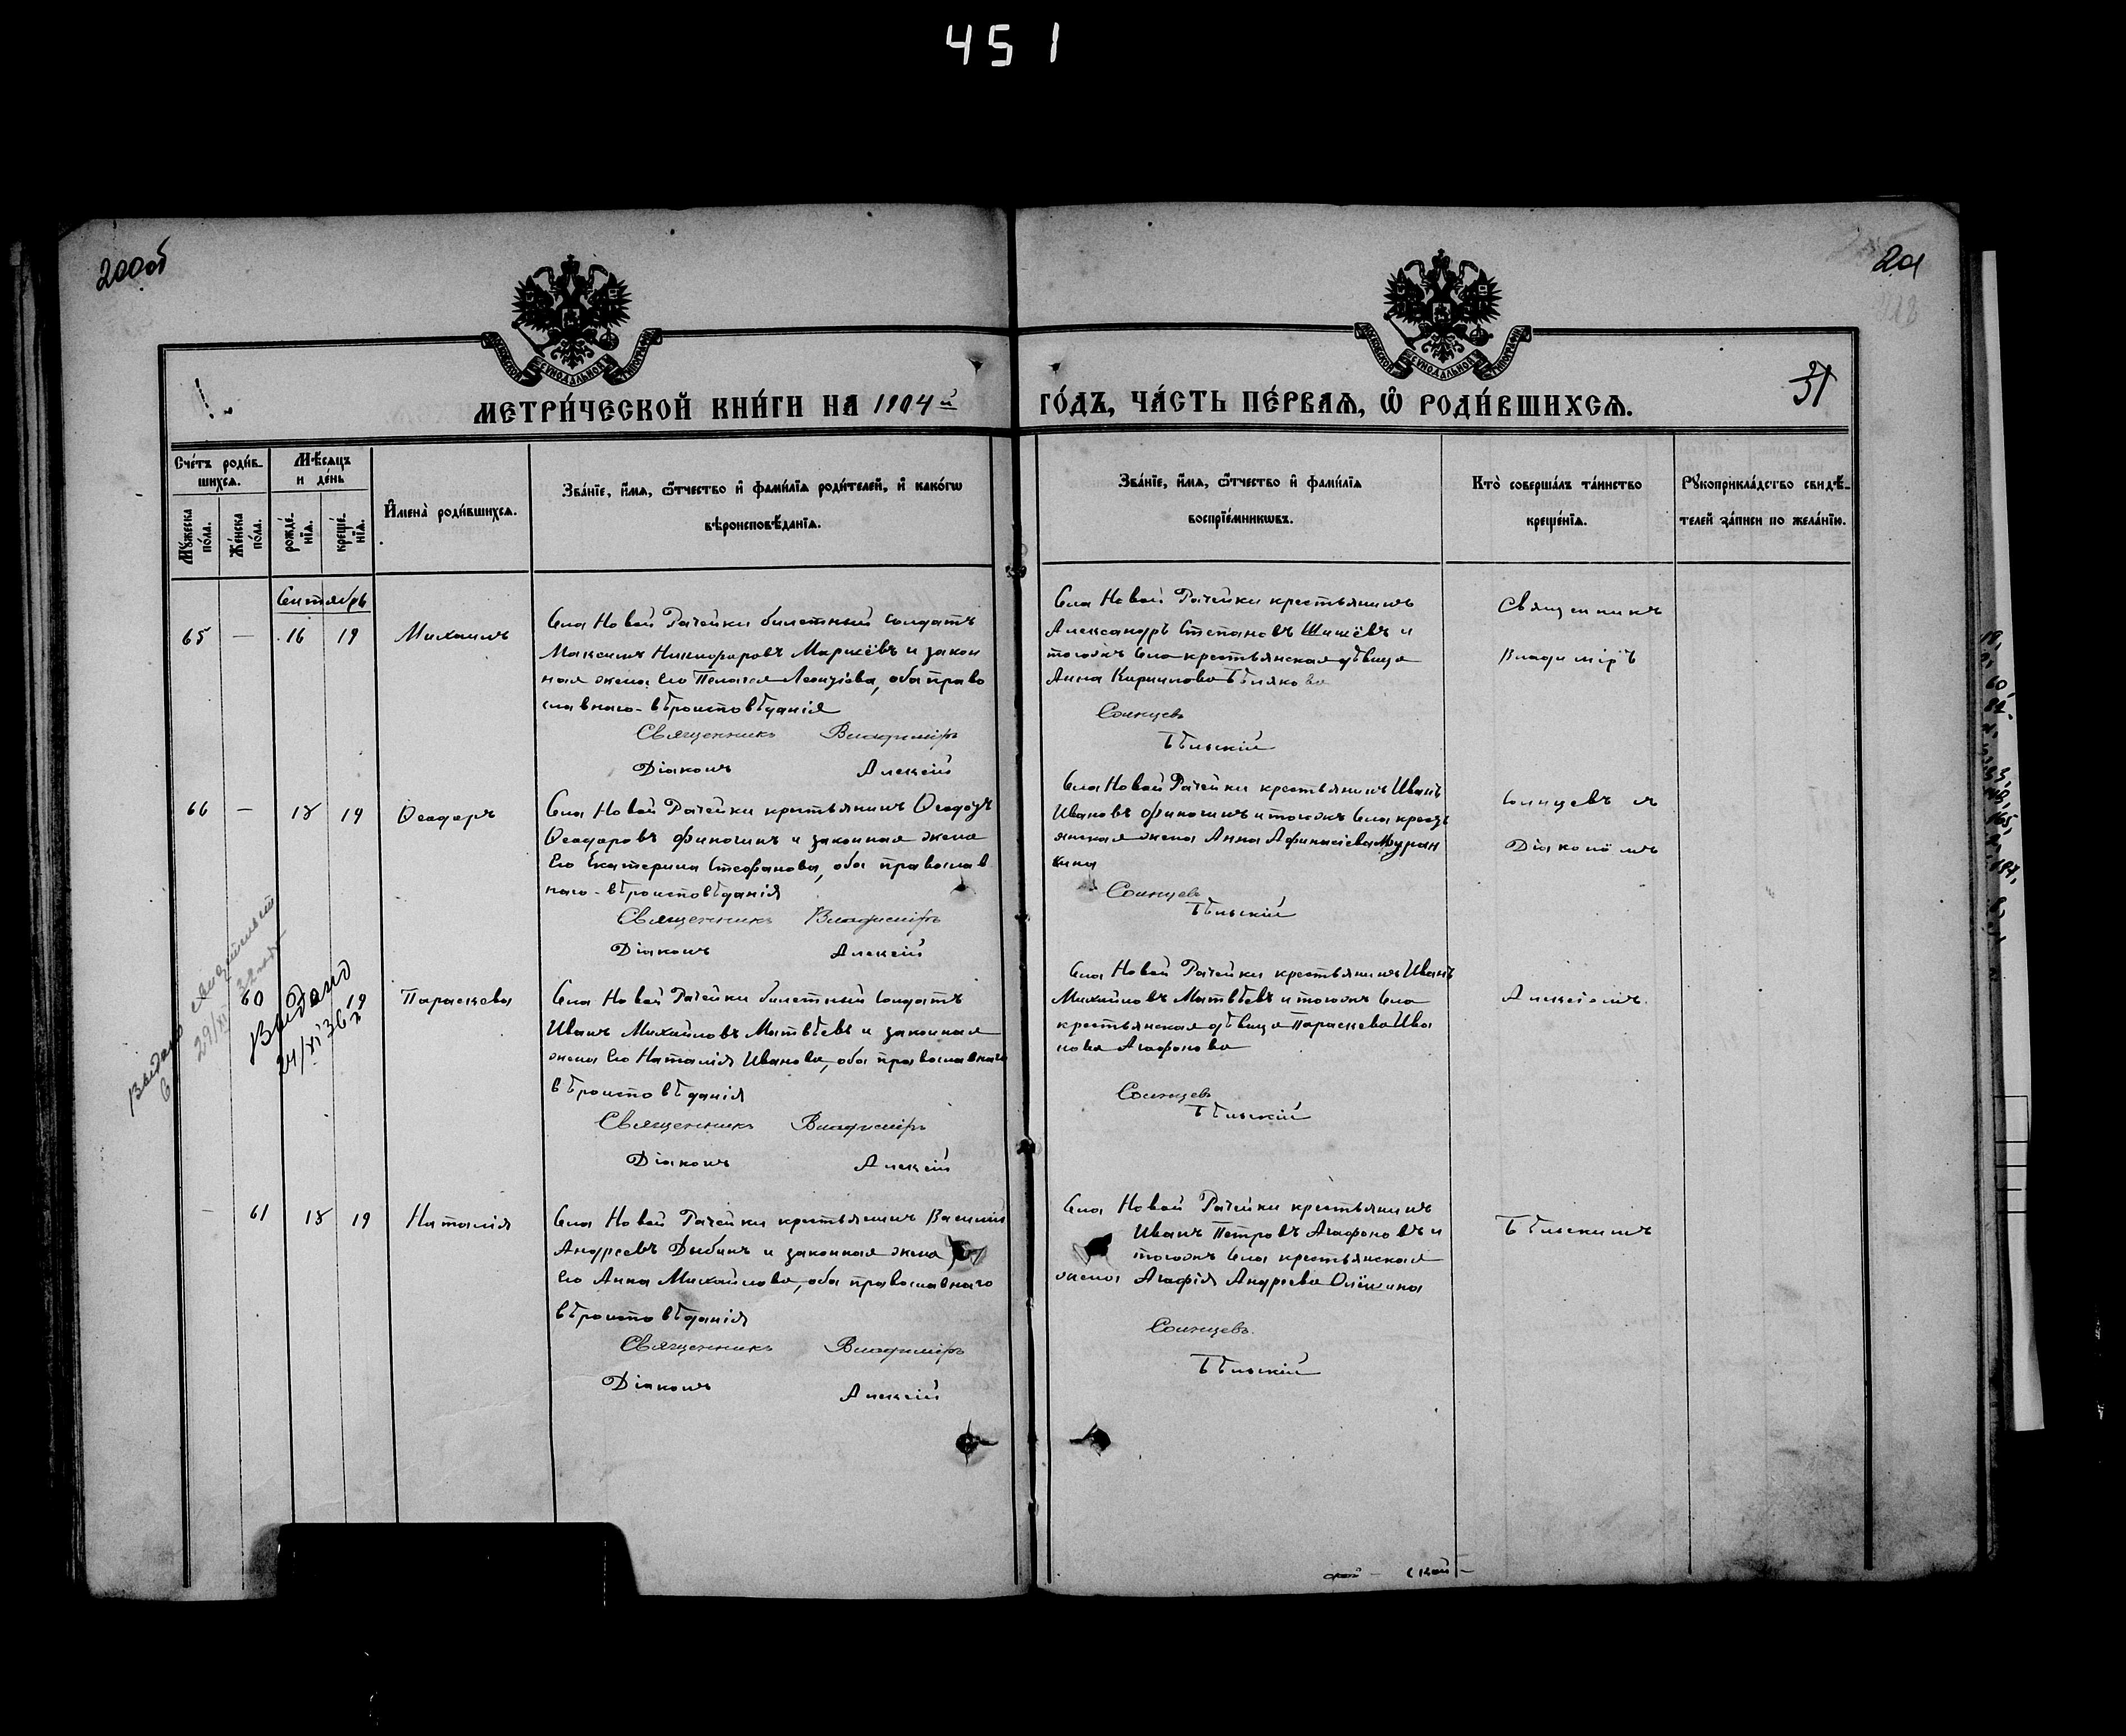 451
200об
201
31
МЕТРИ́ЧЕСКОЙ КНИ́ГИ НА 1904й
ГО́ДЪ, ЧА́СТЬ ПЕ́РВАѦ, Ѽ РОДИ́ВШИХСѦ.
Сче́тъ роди́в-
шихсѧ.
Мѣсѧцъ
и де́нь
Мꙋжеска
по́ла.
Же́нска
по́ла.
рожде́-
нїѧ.
креще́-
нїѧ.
И҆мена̀ роди́вшихсѧ.
Зва́нїе, и҆́мѧ, ѻ҆́тчество и҆ фами́лїѧ роди́телей, и҆ како́гѡ
вѣроисповѣ́данїѧ.
Зва́нїе, и҆́мѧ, ѻ҆́тчество и҆ фами́лїѧ
воспрїе́мникѡвъ.
Кто̀ соверша́лъ та́инство
креще́нїѧ.
Рꙋкоприкла́дство свидѣ́-
телей за́писи по жела́нїю.
Сентябрь
65 — 16 19 Михаилъ
Села Новой Рачейки билетный солдатъ
Максимъ Никифоровъ Маркёвъ и закон
ная жена его Пелагея Леонтіева, оба право
славнаго вѣроисповѣданія
Священникъ Владиміръ
Діаконъ Алексій
Села Новой Рачейки крестьянинъ
Александръ Степановъ Шишёвъ и
тогожъ села крестьянская дѣвица
Анна Кириллова Бѣлякова
Солнцевъ
Бѣльскій
Священникъ
Владиміръ
66 — 18 19 Ѳеодоръ
Села Новой Рачейки крестьянинъ Ѳеодоръ
Ѳеодоровъ Финогинъ и законная жена
его Екатерина Стефанова, оба православ
наго вѣроисповѣданія
Священникъ Владиміръ
Діаконъ Алексій
Села Новой Рачейки крестьянинъ Иванъ
Ивановъ Финогинъ и тогожъ села кресть
янская жена Анна Афинасіева Муран
кина
Солнцевъ
Бѣльскій
Солнцевъ съ
Діакономъ
60 18 19 Параскева
Выдано
24/XI 36
Села Новой Рачейки билетный солдатъ
Иванъ Михайловъ Матвѣевъ и законная
жена его Наталія Иванова, оба православнаго
вѣроисповѣданія
Священникъ Владиміръ
Діаконъ Алексій
Села Новой Рачейки крестьянинъ Иванъ
Михайловъ Матвѣевъ и тогожъ села
крестьянская дѣвица Параскева Ива
нова Агафонова
Солнцевъ
Бѣльскій
Алексіемъ
— 61 18 19 Наталія
Села Новой Рачейки крестьянинъ Василій
Андреевъ Дыбинъ и законная жена
его Анна Михайлова, оба православнаго
вѣроисповѣданія
Священникъ Владиміръ
Діаконъ Алексій
Села Новой Рачейки крестьянинъ
Иванъ Петровъ Агафоновъ и
тогожъ села крестьянская
жена Агафія Андреева Олёшина
Солнцевъ.
Бѣльскій
Бѣльскимъ